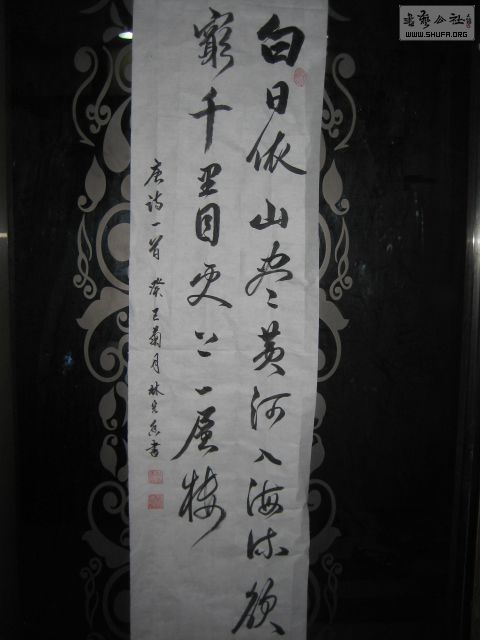 白日依山尽黄河入海流欲
窮千里目更上一層樓
唐诗一首 癸巳菊月 林書
書藝公社
WWW.SHUFA.ORG